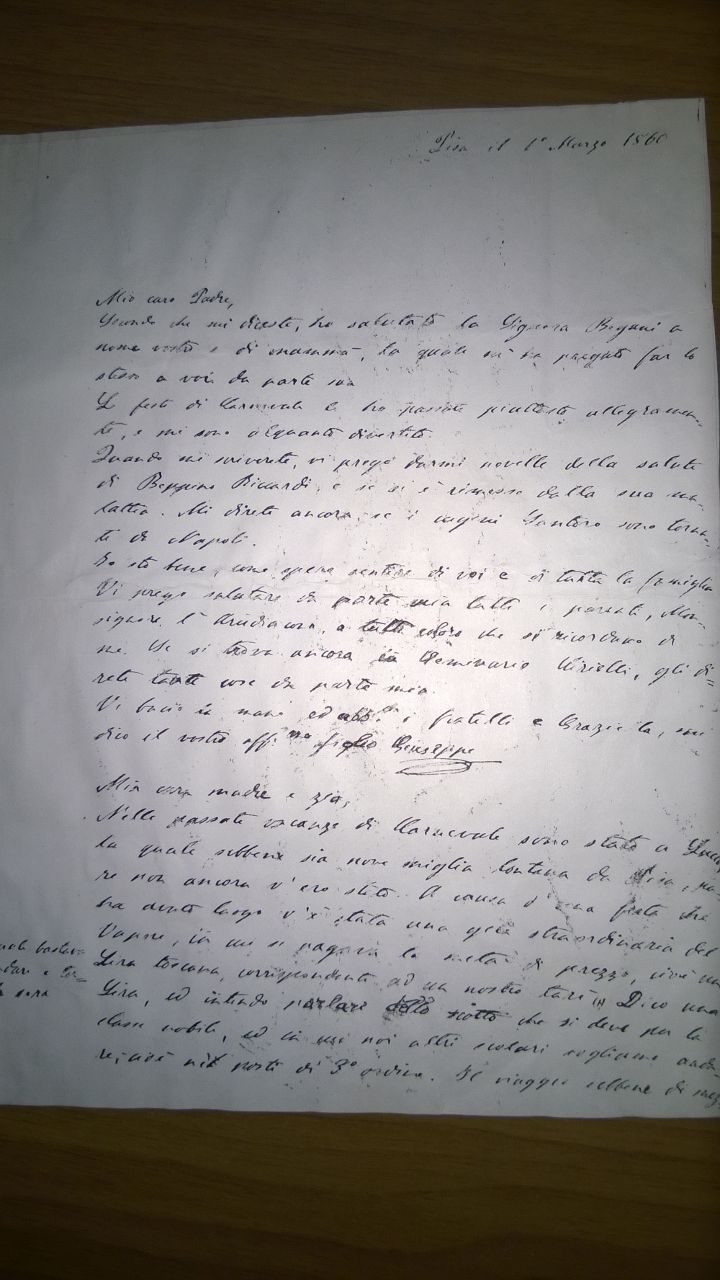 Pisa il 1° Marzo 1860
Mio caro Padre,
Secondo che mi diceste, ho salutato la Signora Bogani a
nome vostro e di mammà, la quale mi ha pregato far lo
stesso a voi da parte sua
Le feste di Carnevale le ho passate piuttosto allegramen-
te, e mi sono alquanto divertito.
Quando mi scriverete, vi prego darmi novelle della salute
di Beppino Ricciardi, e se si è rimesso dalla sua ma-
lattia. Mi direte ancora, se i cugini Santoro sono torna-
ti di Napoli.
Io sto bene, come spero sentire di voi e di tutta la famiglia
Vi prego salutare da parte mia tutti i parenti, Mon-
signore, l'Arcidiacono, e tutti coloro che si ricordano di
me. Se si trova ancora in Seminario gli di=
rete tante cose da parte mia.
Vi bacio la mano ed i fratelli e Grazie la, mi
dico il vostro aff.mo figlio Giuseppe
Mia cara madre e zia,
Nelle passate vacanze di Carnevale sono stato a Lucca,
la quale sebbene sia nove miglia lontana da Pisa, pu-
re non ancora v'ero stato. A causa d'una festa che
ha avuto luogo v'è stata una gita straordinaria del
Vapore, in cui si pagava la metà di prezzo, cioè una
Lira toscana, corrispondente ad un nostro tarì. Dico una
Lira, ed intendo parlare dello che si deve per la
classe nobile, ed in cui noi altri scolari vogliamo anda-
re, cioè nei posti di 3° ordine. Il viaggio sebbene di
bastava
sera